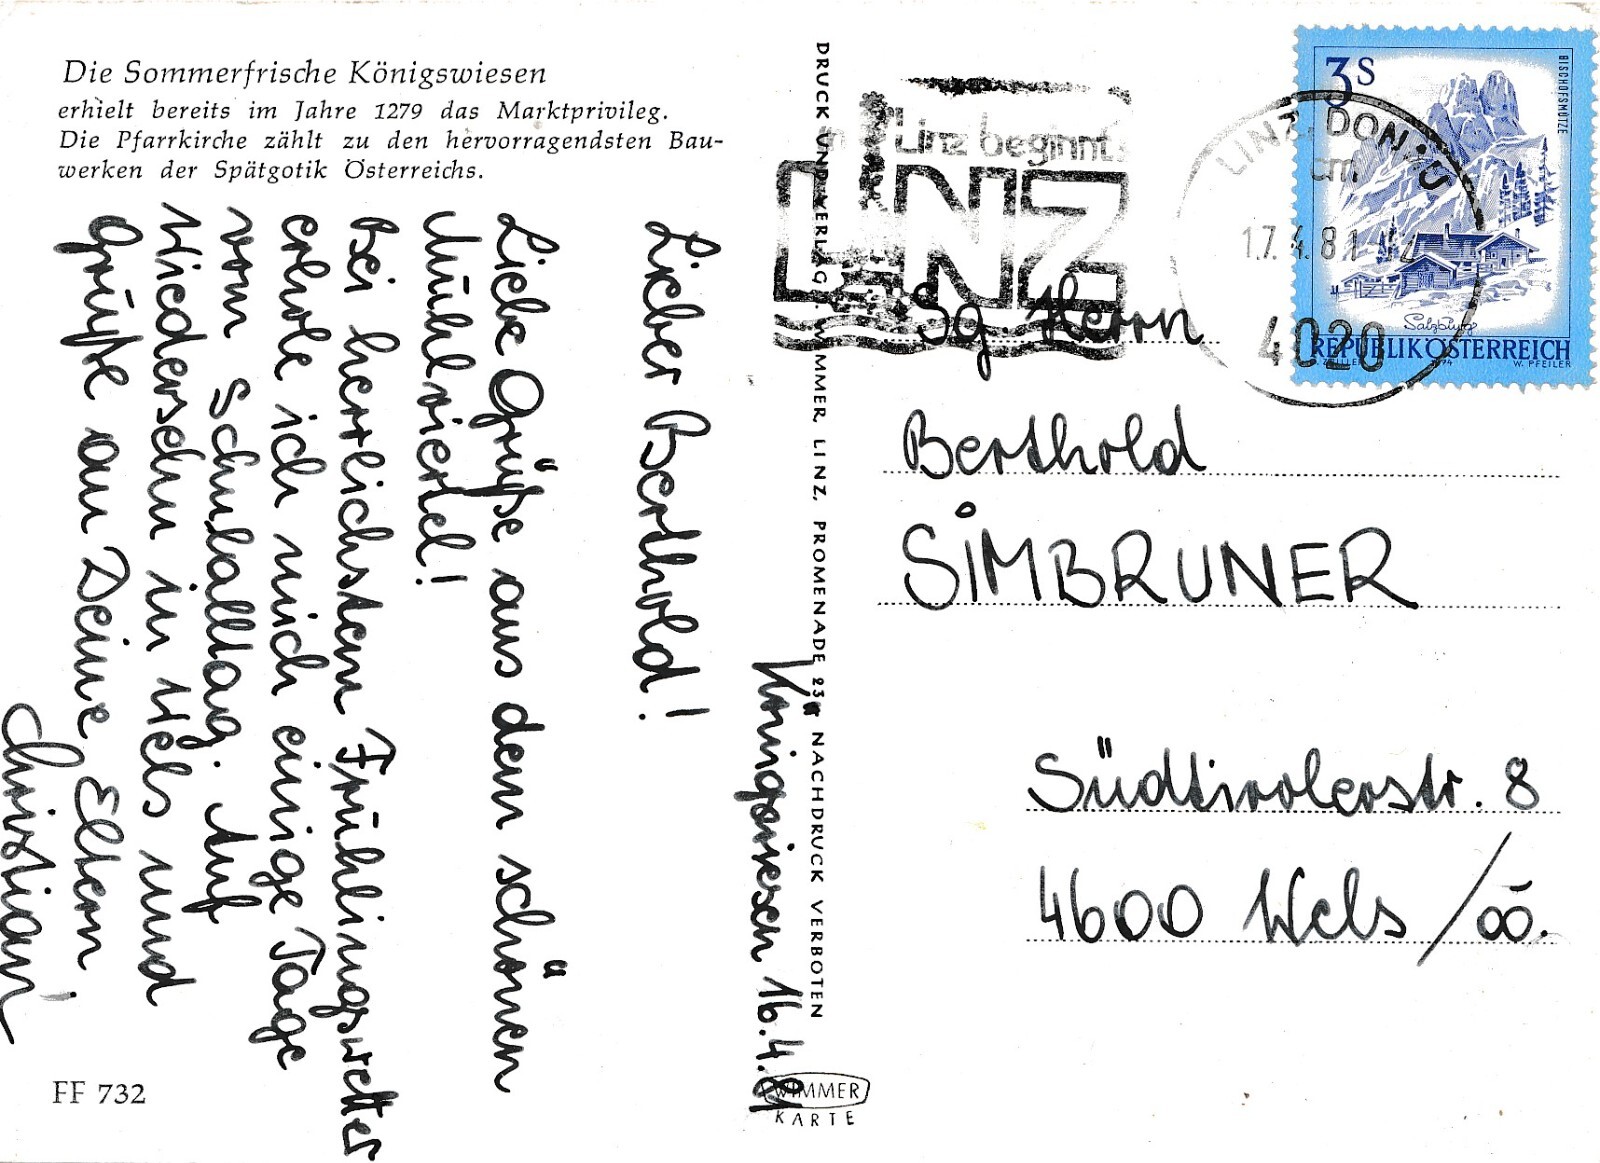 Die Sommerfrische Königswiesen
erhielt bereits im Jahre 1279 das Marktprivileg.
Die Pfarrkirche zählt zu den hervorragendsten Bau-
werken der Spätgotik Österreichs.
Königswiesen 16.4.81
Lieber Berthold!
Liebe Grüße aus dem schönen
Mühlviertel!
Bei herrlichstem Frühlingswetter
erhole ich mich einige Tage
vom Schulalltag. Auf
Wiedersehn in Wels und
Grüße an Deine Eltern,
Christian
FF 732
DRUCK UND VERLAG: WIMMER, LINZ, PROMENADE 23 NACHDRUCK VERBOTEN
WIMMER
KARTE
Linz beginnt
LINZ
LINZ, DONAU
17.4.81
4020
3 S
BISCHOFSMÜTZE
Salzburg
REPUBLIK ÖSTERREICH
W. PFEILER
Sg. Herrn
Berthold
SIMBRUNER
Südtirolerstr. 8
4600 Wels / OÖ.